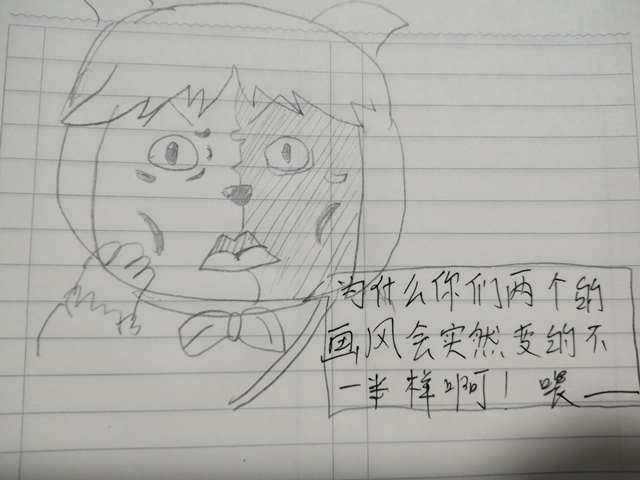 为什么你们两个的
画风会突然变的不
一半样啊！喂——